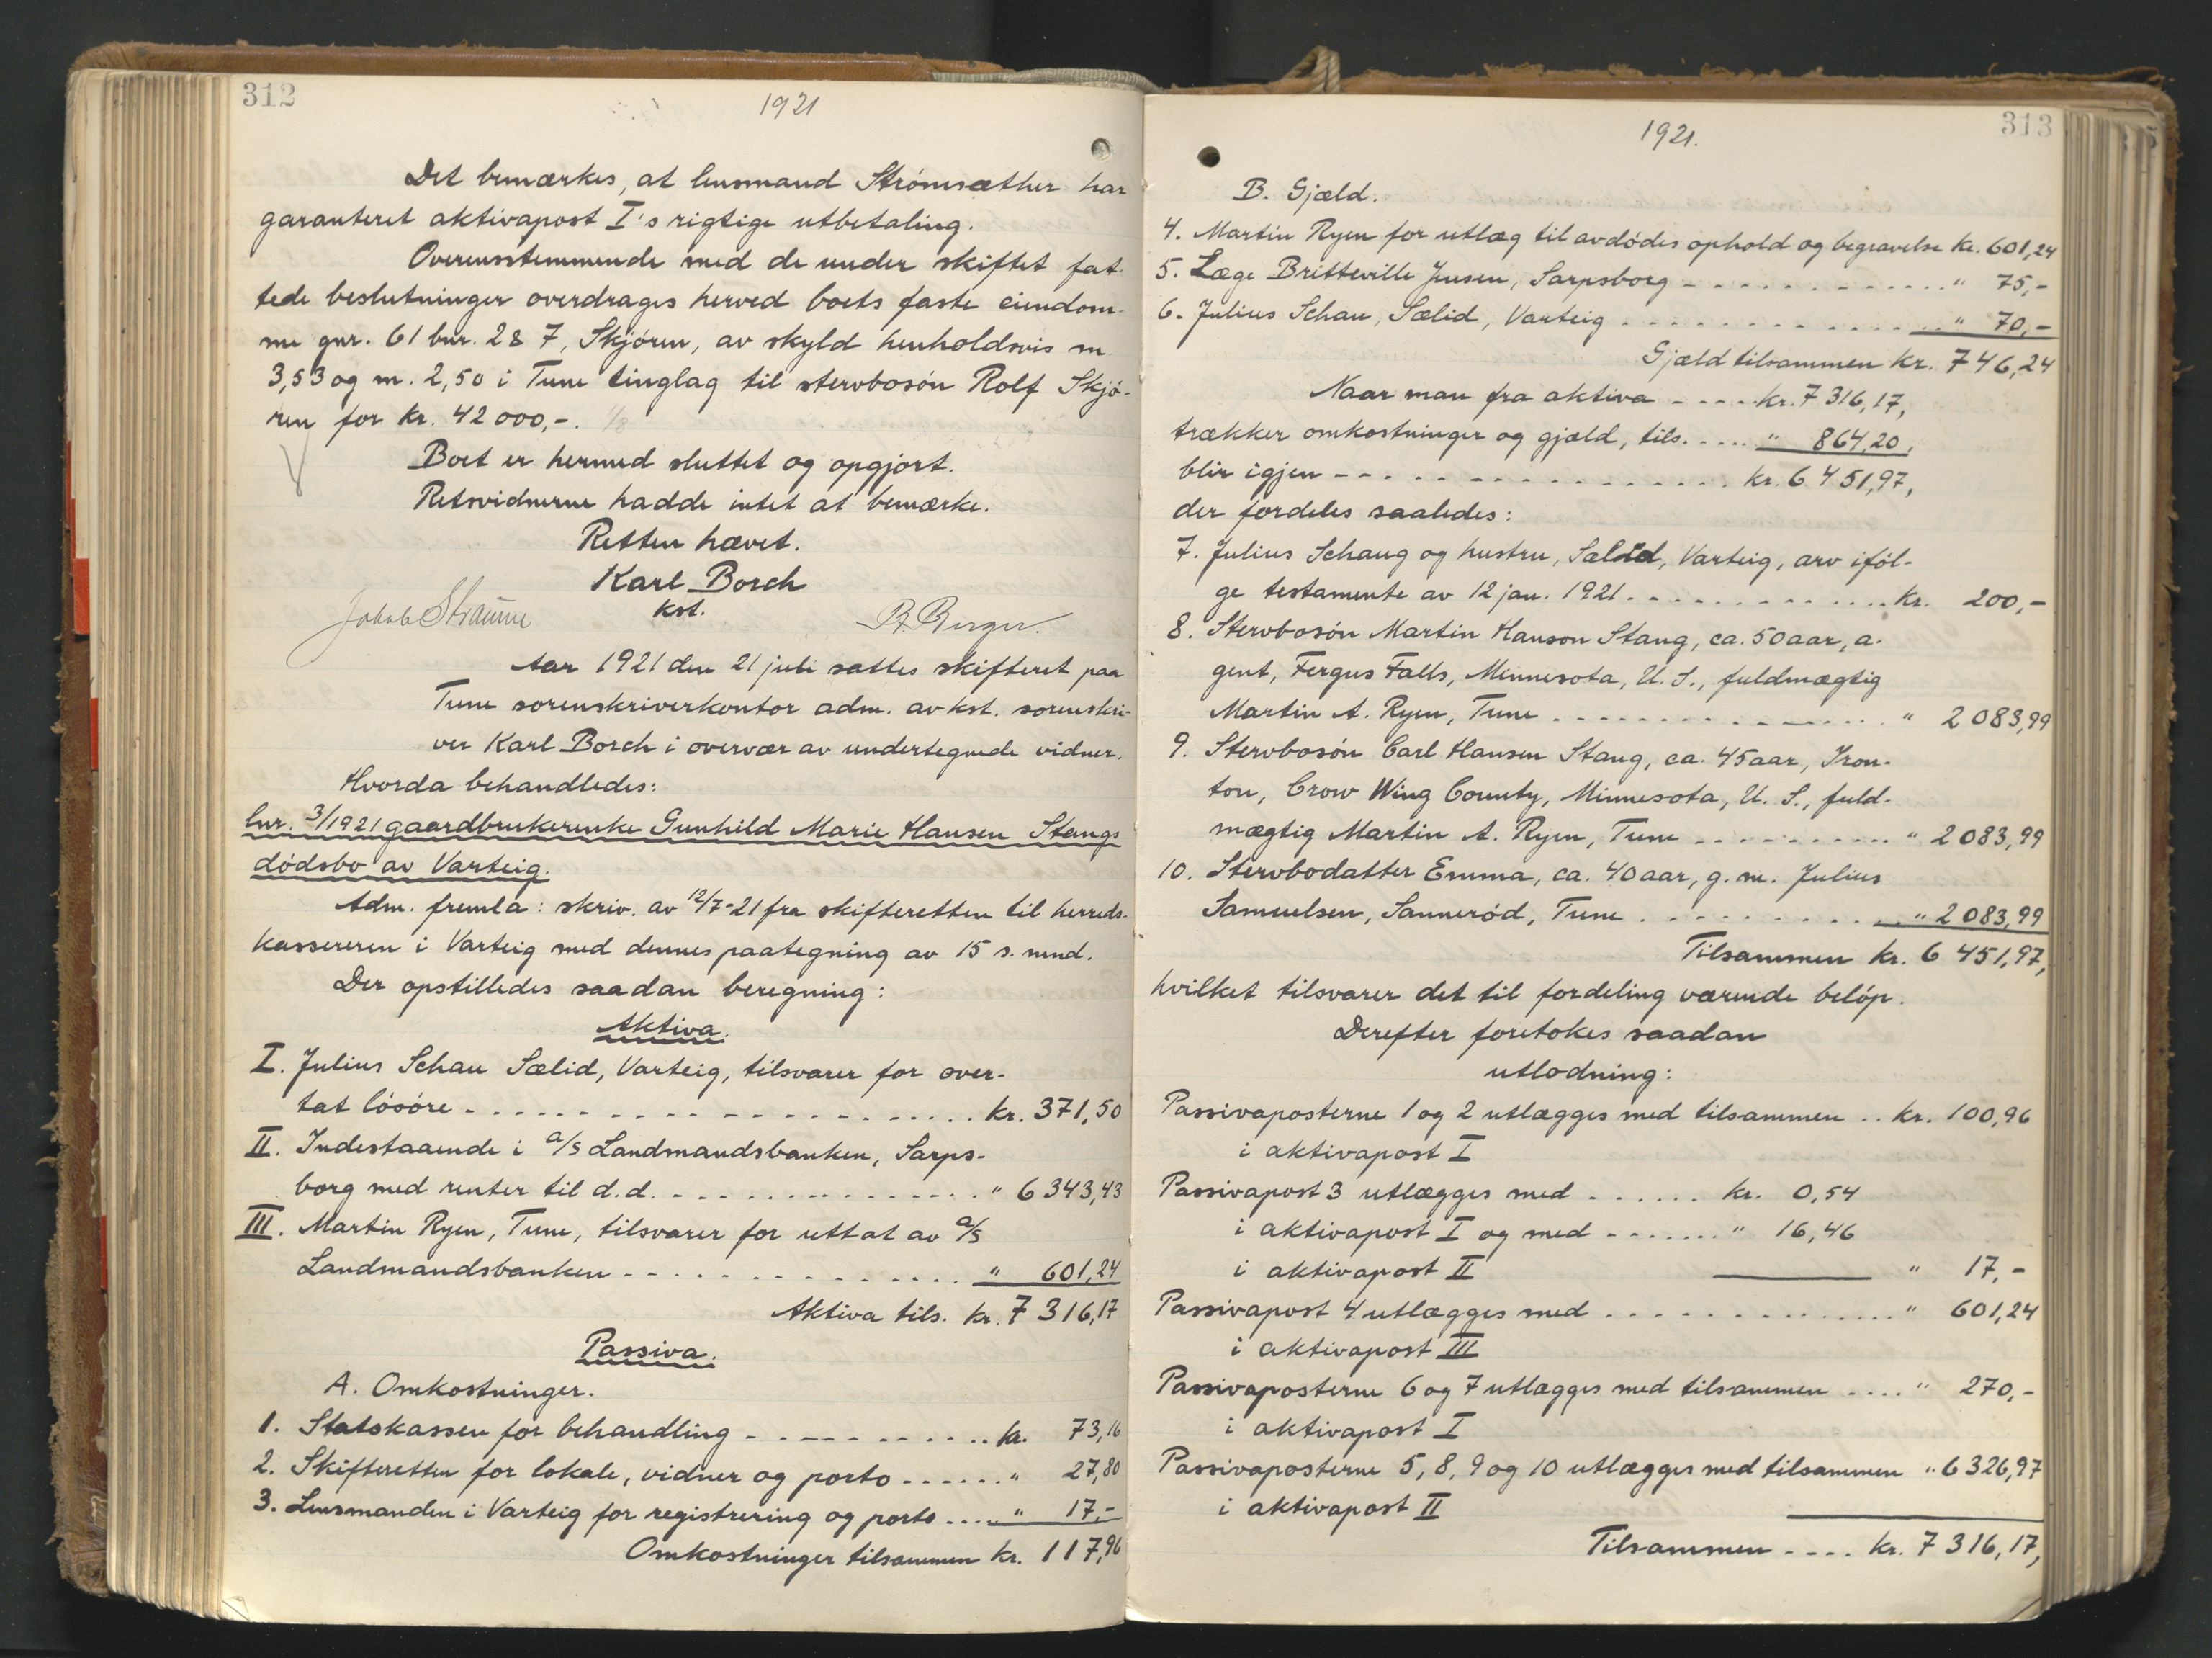 312
1921
Det bemærkes, at lensmand Strømsæther har
garanteret aktivapost I's rigtige utbetaling.
Overensstemmende med de under skiftet fat-
tede beslutninger overdrages herved boets faste eiendom-
me gnr. 61 bnr. 2 & 7, Skjøren, av skyld henholdsvis m
3,53 og m. 2,50 i Tune tinglag til stervbosøn Rolf Skjø-
ren for kr. 42 000,-. 1/8
Boet er hermed sluttet og opgjort.
Retsvidnerne hadde intet at bemærke.
Retten hævet.
Karl Borch
kst.
Jakob Straume
Aar 1921 den 21 juli sattes skifteret paa
Tune sorenskriverkontor adm. av kst. sorenskri-
ver Karl Borch i overvær av undertegnede vidner.
Hvorda behandledes:
lnr. 3/1921 gaardbrukerenke Gunhild Marie Hansen Stangs
dødsbo av Varteig.
Adm. fremla: skriv. av 12/7-21 fra skifteretten til herreds-
kassereren i Varteig med dennes paategning av 15 s. mnd.
Der opstilledes saadan beregning:
Aktiva.
I. Julius Schau Sælid, Varteig, tilsvarer for over-
tat løsøre - - - - - - - - - - kr. 371,50
II. Indestaaende i a/s Landmandsbanken, Sarps-
borg med renter til d.d. - - - - - - - - " 6 343,43
III. Martin Ryen, Tune, tilsvarer for uttat av a/s
Landmandsbanken - - - - - - - - " 601,24
Aktiva tils. kr. 7 316,17
Passiva.
A. Omkostninger.
1. Statskassen for behandling - - - - - - kr. 73,16
2. Skifteretten for lokale, vidner og porto - - - - " 27,80
3. Lensmanden i Varteig for registrering og porto .... " 17,-
Omkostninger tilsammen kr. 117,96
313
1921.
B. Gjæld.
4. Martin Ryen for utlæg til avdødes ophold og begravelse kr. 601,24
5. Læge Britteville Jensen, Sarpsborg - - - - - - " 75,-
6. Julius Schau, Sælid, Varteig - - - - - - - " 70,-
Gjæld tilsammen kr. 746,24
Naar man fra aktiva - - - - kr. 7 316,17,
trækker omkostninger og gjæld, tils. - - - - " 864,20,
blir igjen - - - - - - - - - - kr. 6 451,97,
der fordeles saaledes:
7. Julius Schaug og hustru, Sælid, Varteig, arv iføl-
ge testamente av 12 jan. 1921 - - - - - - - kr. 200,-
8. Stervbosøn Martin Hanson Stang, ca. 50 aar, a-
gent, Fergus Falls, Minnesota, U. S., fuldmægtig
Martin A. Ryen, Tune - - - - - - - - " 2 083,99
9. Stervbosøn Carl Hansen Stang, ca. 45 aar, Iron-
ton, Crow Wing County, Minnesota, U. S., fuld-
mægtig Martin A. Ryen, Tune - - - - - - " 2 083,99
10. Stervbodatter Emma, ca. 40 aar, g. m. Julius
Samuelsen, Sannerød, Tune - - - - - - - " 2 083,99
Tilsammen kr. 6 451,97,
hvilket tilsvarer det til fordeling værende beløp.
Derefter foretokes saadan
utlodning:
Passivaposterne 1 og 2 utlægges med tilsammen .. kr. 100,96
i aktivapost I
Passivapost 3 utlægges med - - - - - - kr. 0,54
i aktivapost I og med - - - - - - " 16,46
i aktivapost II " 17,-
Passivapost 4 utlægges med - - - - - - - - " 601,24
i aktivapost III
Passivaposterne 6 og 7 utlægges med tilsammen .... " 270,-
i aktivapost I
Passivaposterne 5, 8, 9 og 10 utlægges med tilsammen " 6 326,97
i aktivapost II
Tilsammen - - - - kr. 7 316,17,